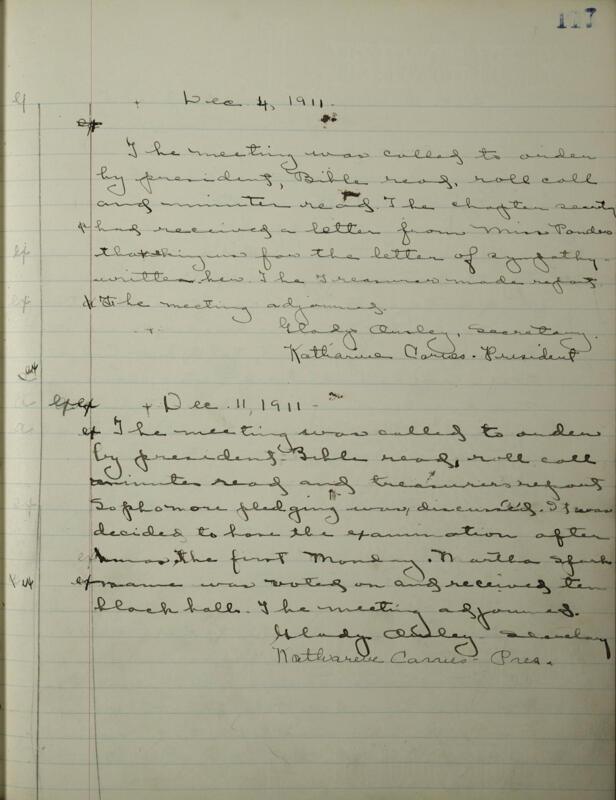 117
Dec 4, 1911.
The meeting was called to order
by president, Bible read, roll call
and minutes read. The chapter
had received a letter from Miss
thanking us for the letter of sympathy
written her. The Treasurer made report.
The meeting adjourned.
Gladys Ansley, Secretary.
Katharine Carnes - President
Dec. 11, 1911 -
The meeting was called to order
by president - Bible read, roll call
minutes read and treasurers report
Sophomore pledging was discussed. It was
decided to have the examination after
Xmas, the first Monday. Martha
name was voted on and received ten
black balls. The meeting adjourned.
Gladys Ansley - Secretary
Katharine Carnes - Pres.